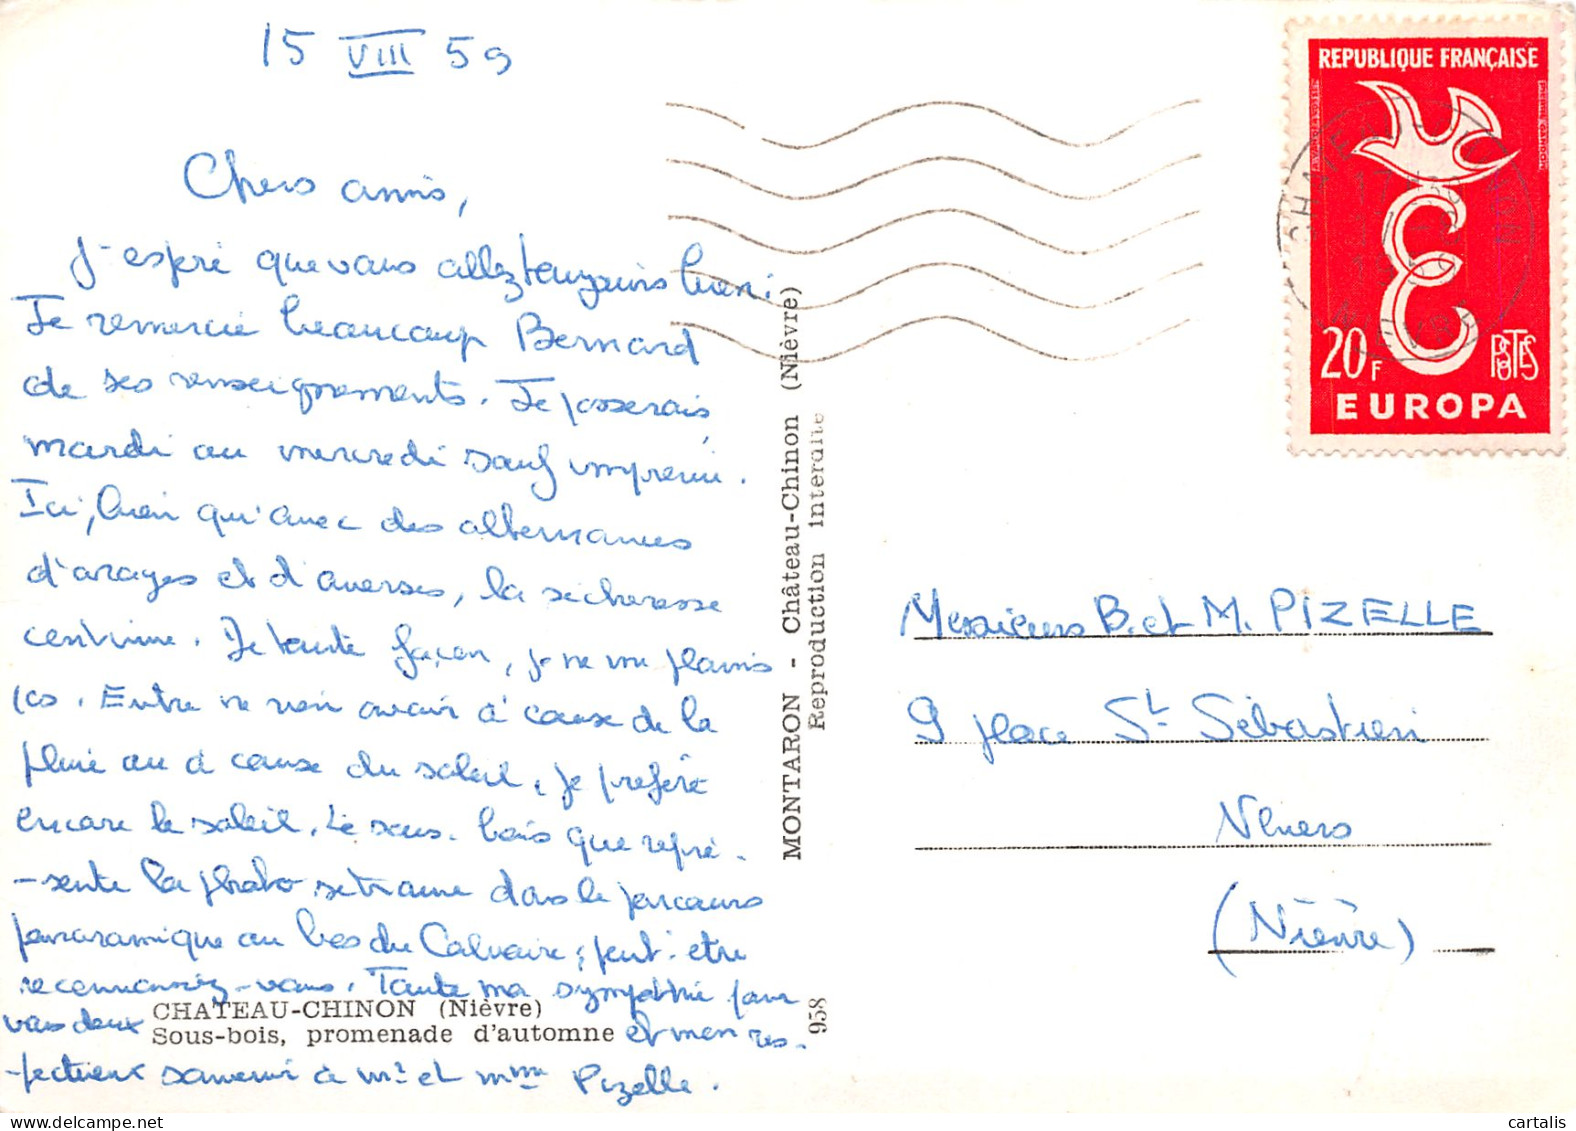 15 VIII 59
Chers amis,
J'espère que vous allez toujours bien.
Je remercie beaucoup Bernard
de ses renseignements. Je passerais
mardi ou mercredi sauf imprévu.
Ici, bien qu'avec des alternances
d'orages et d'averses, la sécheresse
continue. De toute façon, je ne me plains
pas. Entre ne rien avoir à cause de la
pluie ou à cause du soleil, je préfère
encore le soleil. Le sous-bois que repré-
-sente la photo se trouve dans le parcours
panoramique au bas du Calvaire; peut-être
reconnaissez-vous. Toute ma sympathie pour
vous deux et mon res-
-pectueux souvenir à Mr et Mme Pizelle.
CHATEAU-CHINON (Nièvre)
Sous-bois, promenade d'automne
958
MONTARON - Château-Chinon (Nièvre)
Reproduction interdite
REPUBLIQUE FRANÇAISE
20F POSTES
EUROPA
Messieurs B. et M. PIZELLE
9 place St Sébastien
Nevers
(Nièvre)
cartalis